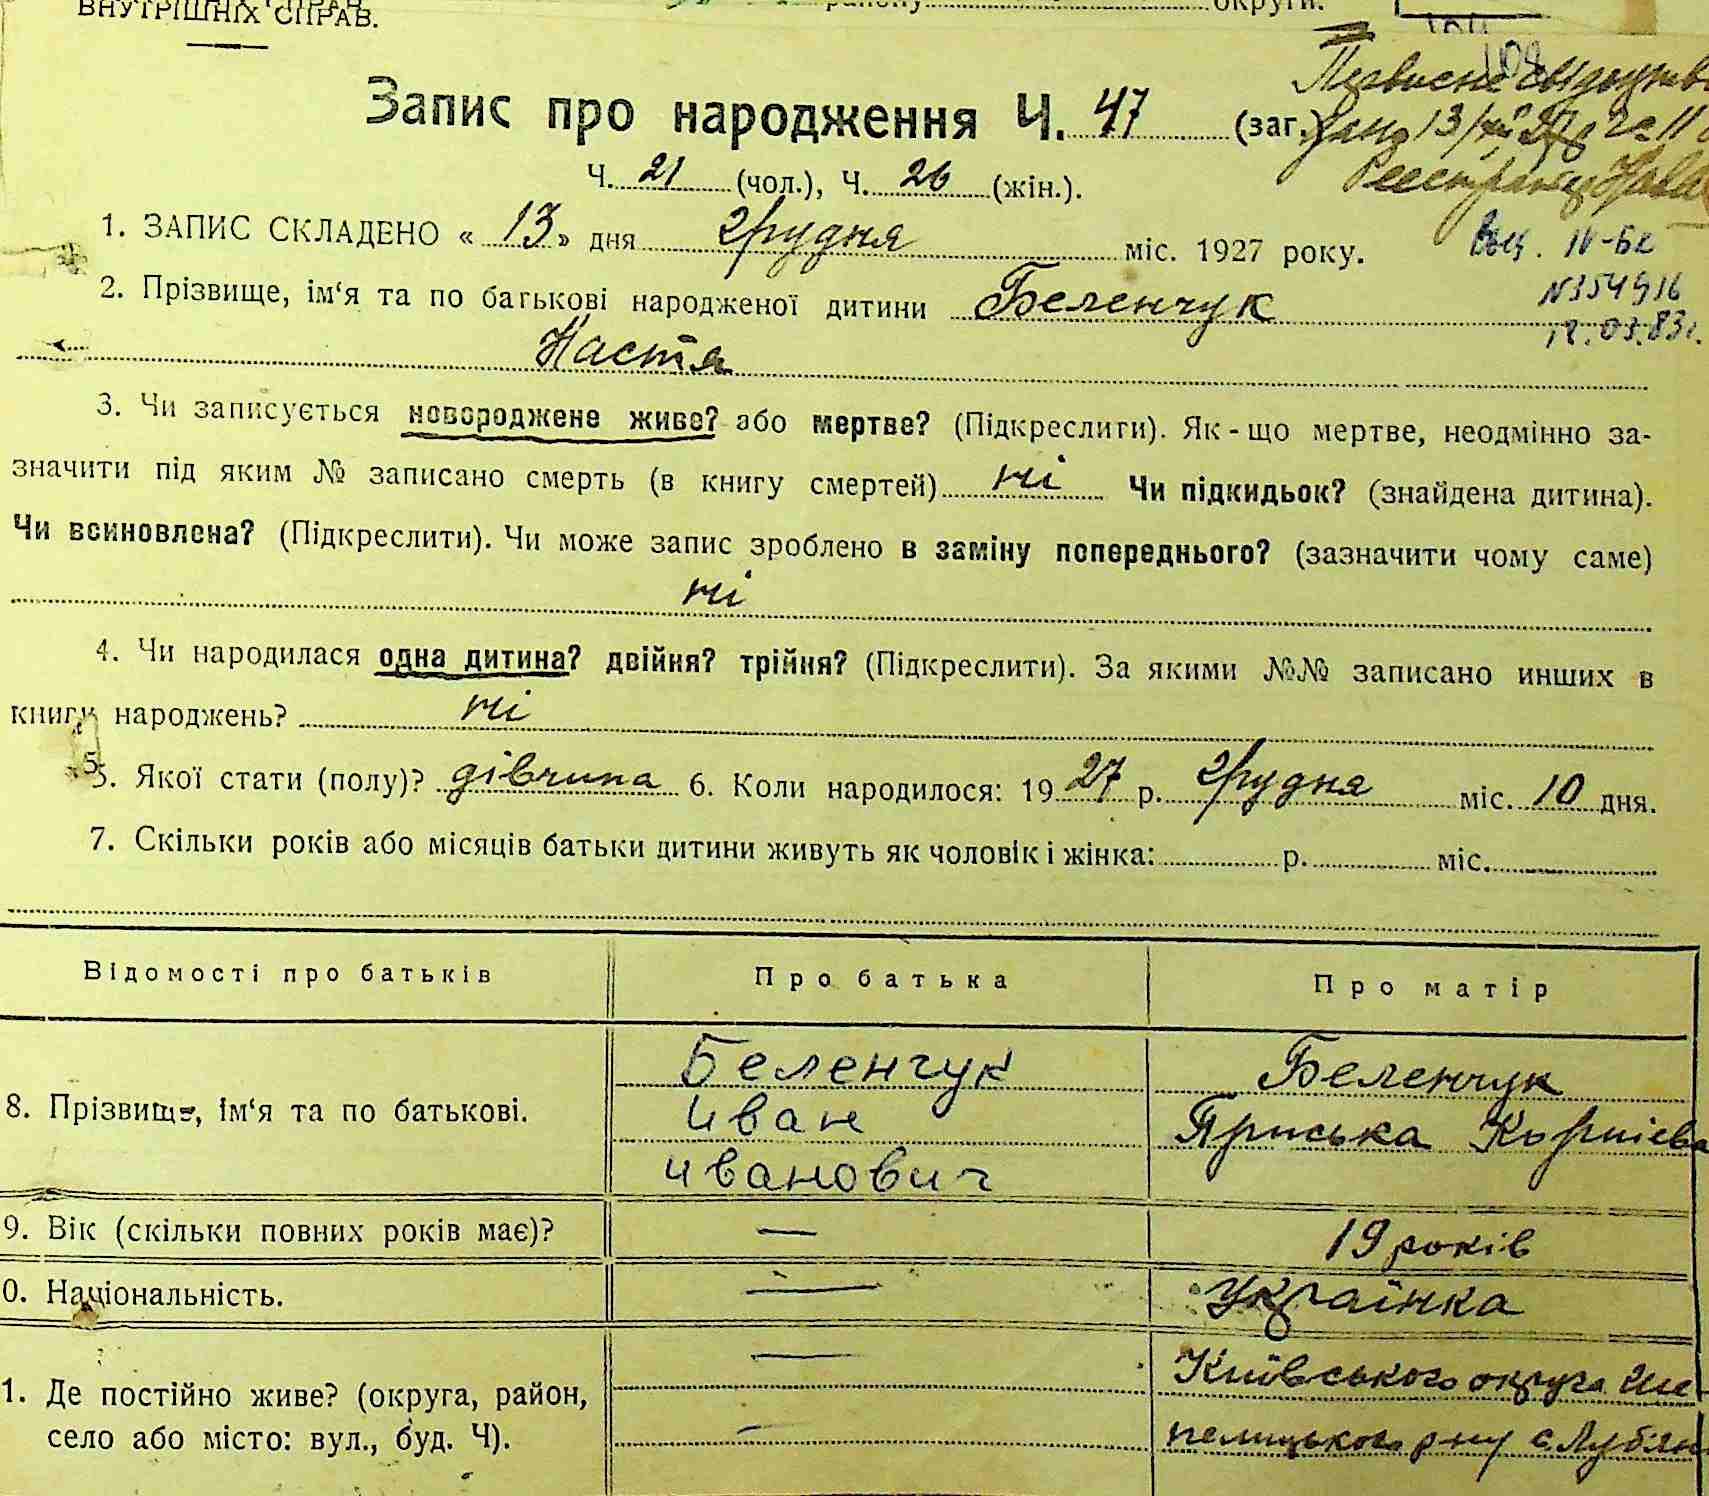 ВНУТРІШНІХ СПРАВ.
району округи.
Запис про народження Ч. 47 (заг.)
Первисне свідоцтво
13/XII 27
Ч. 21 (чол.), Ч. 26 (жін.).
1. ЗАПИС СКЛАДЕНО « 13 » дня грудня міс. 1927 року.
IV-БК
№354916
12.03.83г.
2. Прізвище, ім‘я та по батькові народженої дитини Беленчук
Настя
3. Чи записується новороджене живе? або мертве? (Підкреслити). Як-що мертве, неодмінно за-
значити під яким № записано смерть (в книгу смертей) ні Чи підкидьок? (знайдена дитина).
Чи всиновлена? (Підкреслити). Чи може запис зроблено в заміну попереднього? (зазначити чому саме)
ні
4. Чи народилася одна дитина? двійня? трійня? (Підкреслити). За якими №№ записано инших в
книгу народжень? ні
5. Якої стати (полу)? дівчина 6. Коли народилося: 1927 р. грудня міс. 10 дня.
7. Скільки років або місяців батьки дитини живуть як чоловік і жінка: р. міс.
Відомості про батьків Про батька Про матір
8. Прізвище, ім‘я та по батькові. Беленчук Беленчук
Иван Приська Корніева
Иванович
9. Вік (скільки повних років має)? — 19 років
0. Національність. — Українка
1. Де постійно живе? (округа, район, — Київського округа Ши-
село або місто: вул., буд. Ч). — пелицького р-ну с. Лубян